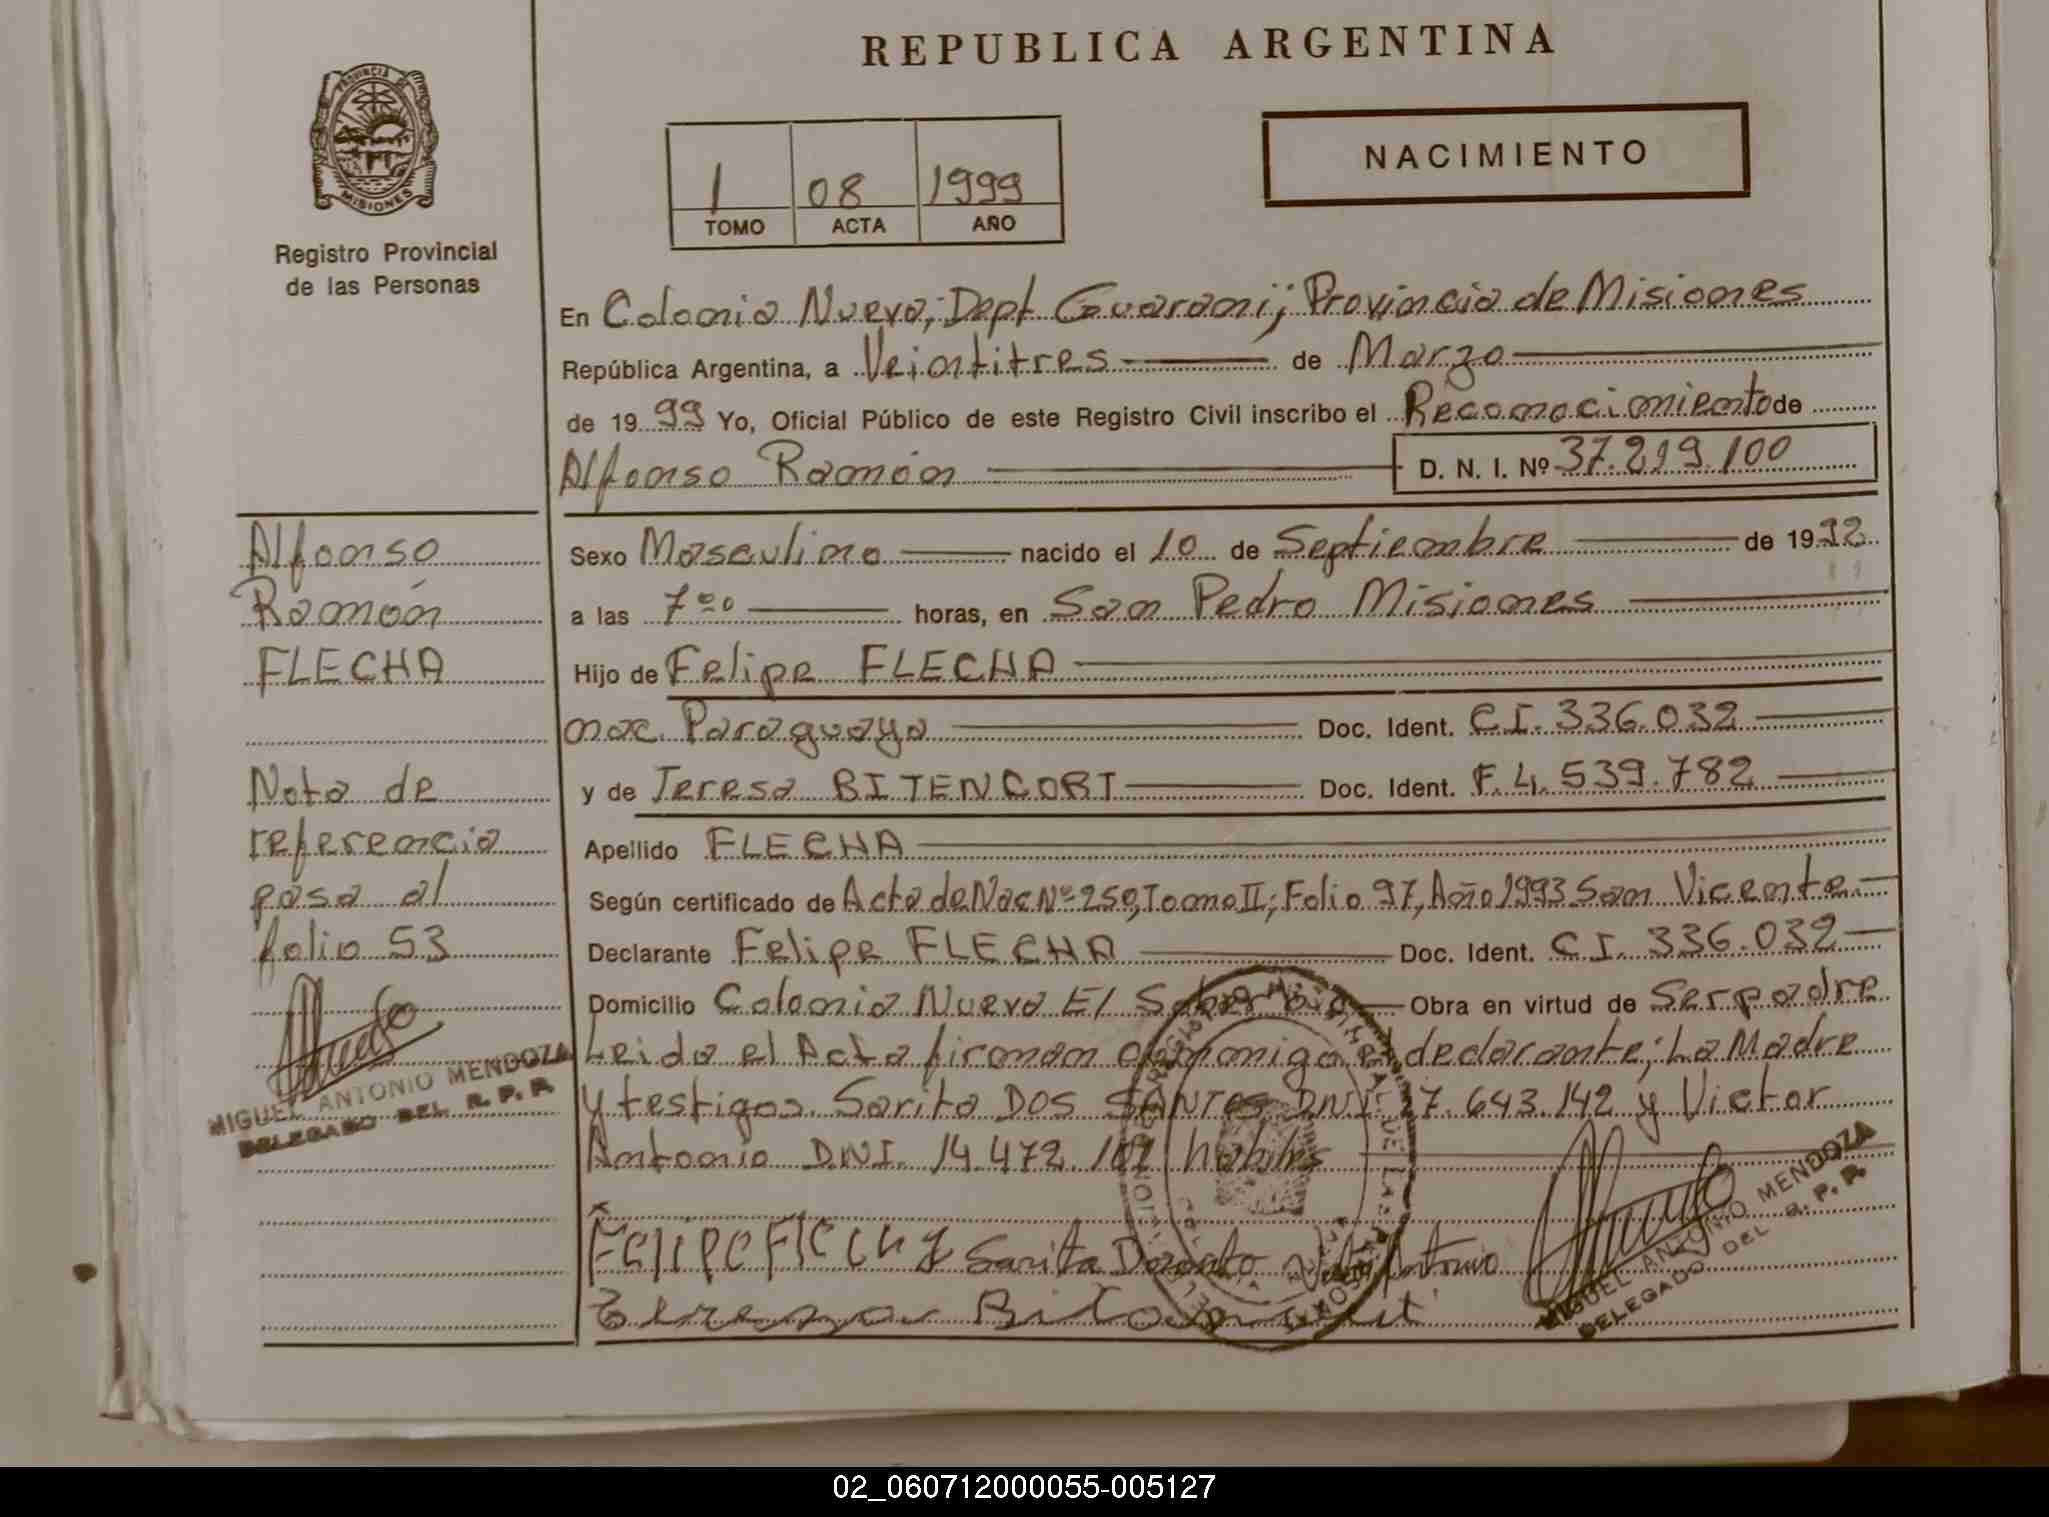 REPUBLICA ARGENTINA
PROVINCIA DE
MISIONES
Registro Provincial
de las Personas
1 08 1999
TOMO ACTA AÑO
NACIMIENTO
En Colonia Nueva; Dept Guaraní; Provincia de Misiones
República Argentina, a Veintitres de Marzo
de 19 99 Yo, Oficial Público de este Registro Civil inscribo el Reconocimiento de
Alfonso Ramón D. N. I. Nº 37.219.100
Sexo Masculino nacido el 10 de Septiembre de 19 92
a las 7 ºº horas, en San Pedro Misiones
Hijo de Felipe FLECHA
nac. Paraguaya Doc. Ident. C.I. 336.032
y de Teresa BITENCORT Doc. Ident. F.4.539.782
Apellido FLECHA
Según certificado de Acta de Nac Nº 250, Tomo II; Folio 97, Año 1993 San Vicente
Declarante Felipe FLECHA Doc. Ident. C.I. 336.032
Domicilio Colonia Nueva El Soberbio Obra en virtud de Ser padre
Leida el Acta firman conmigo el declarante; La Madre
y testigos Sarita DOS SANTOS DNI 17.643.142 y Victor
Antonio DNI. 14.472.
habiles
Felipe Flecha Sarita Antonio
Alfonso
Ramón
FLECHA
Nota de
referencia
pasa al
folio 53
MIGUEL ANTONIO MENDOZA
DELEGADO DEL R. P. P.
MIGUEL ANTONIO MENDOZA
DELEGADO DEL R. P. P.
02_060712000055-005127